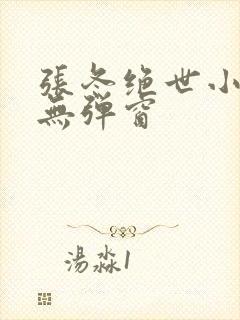 張冬绝世小
無弹窗
湯淼1